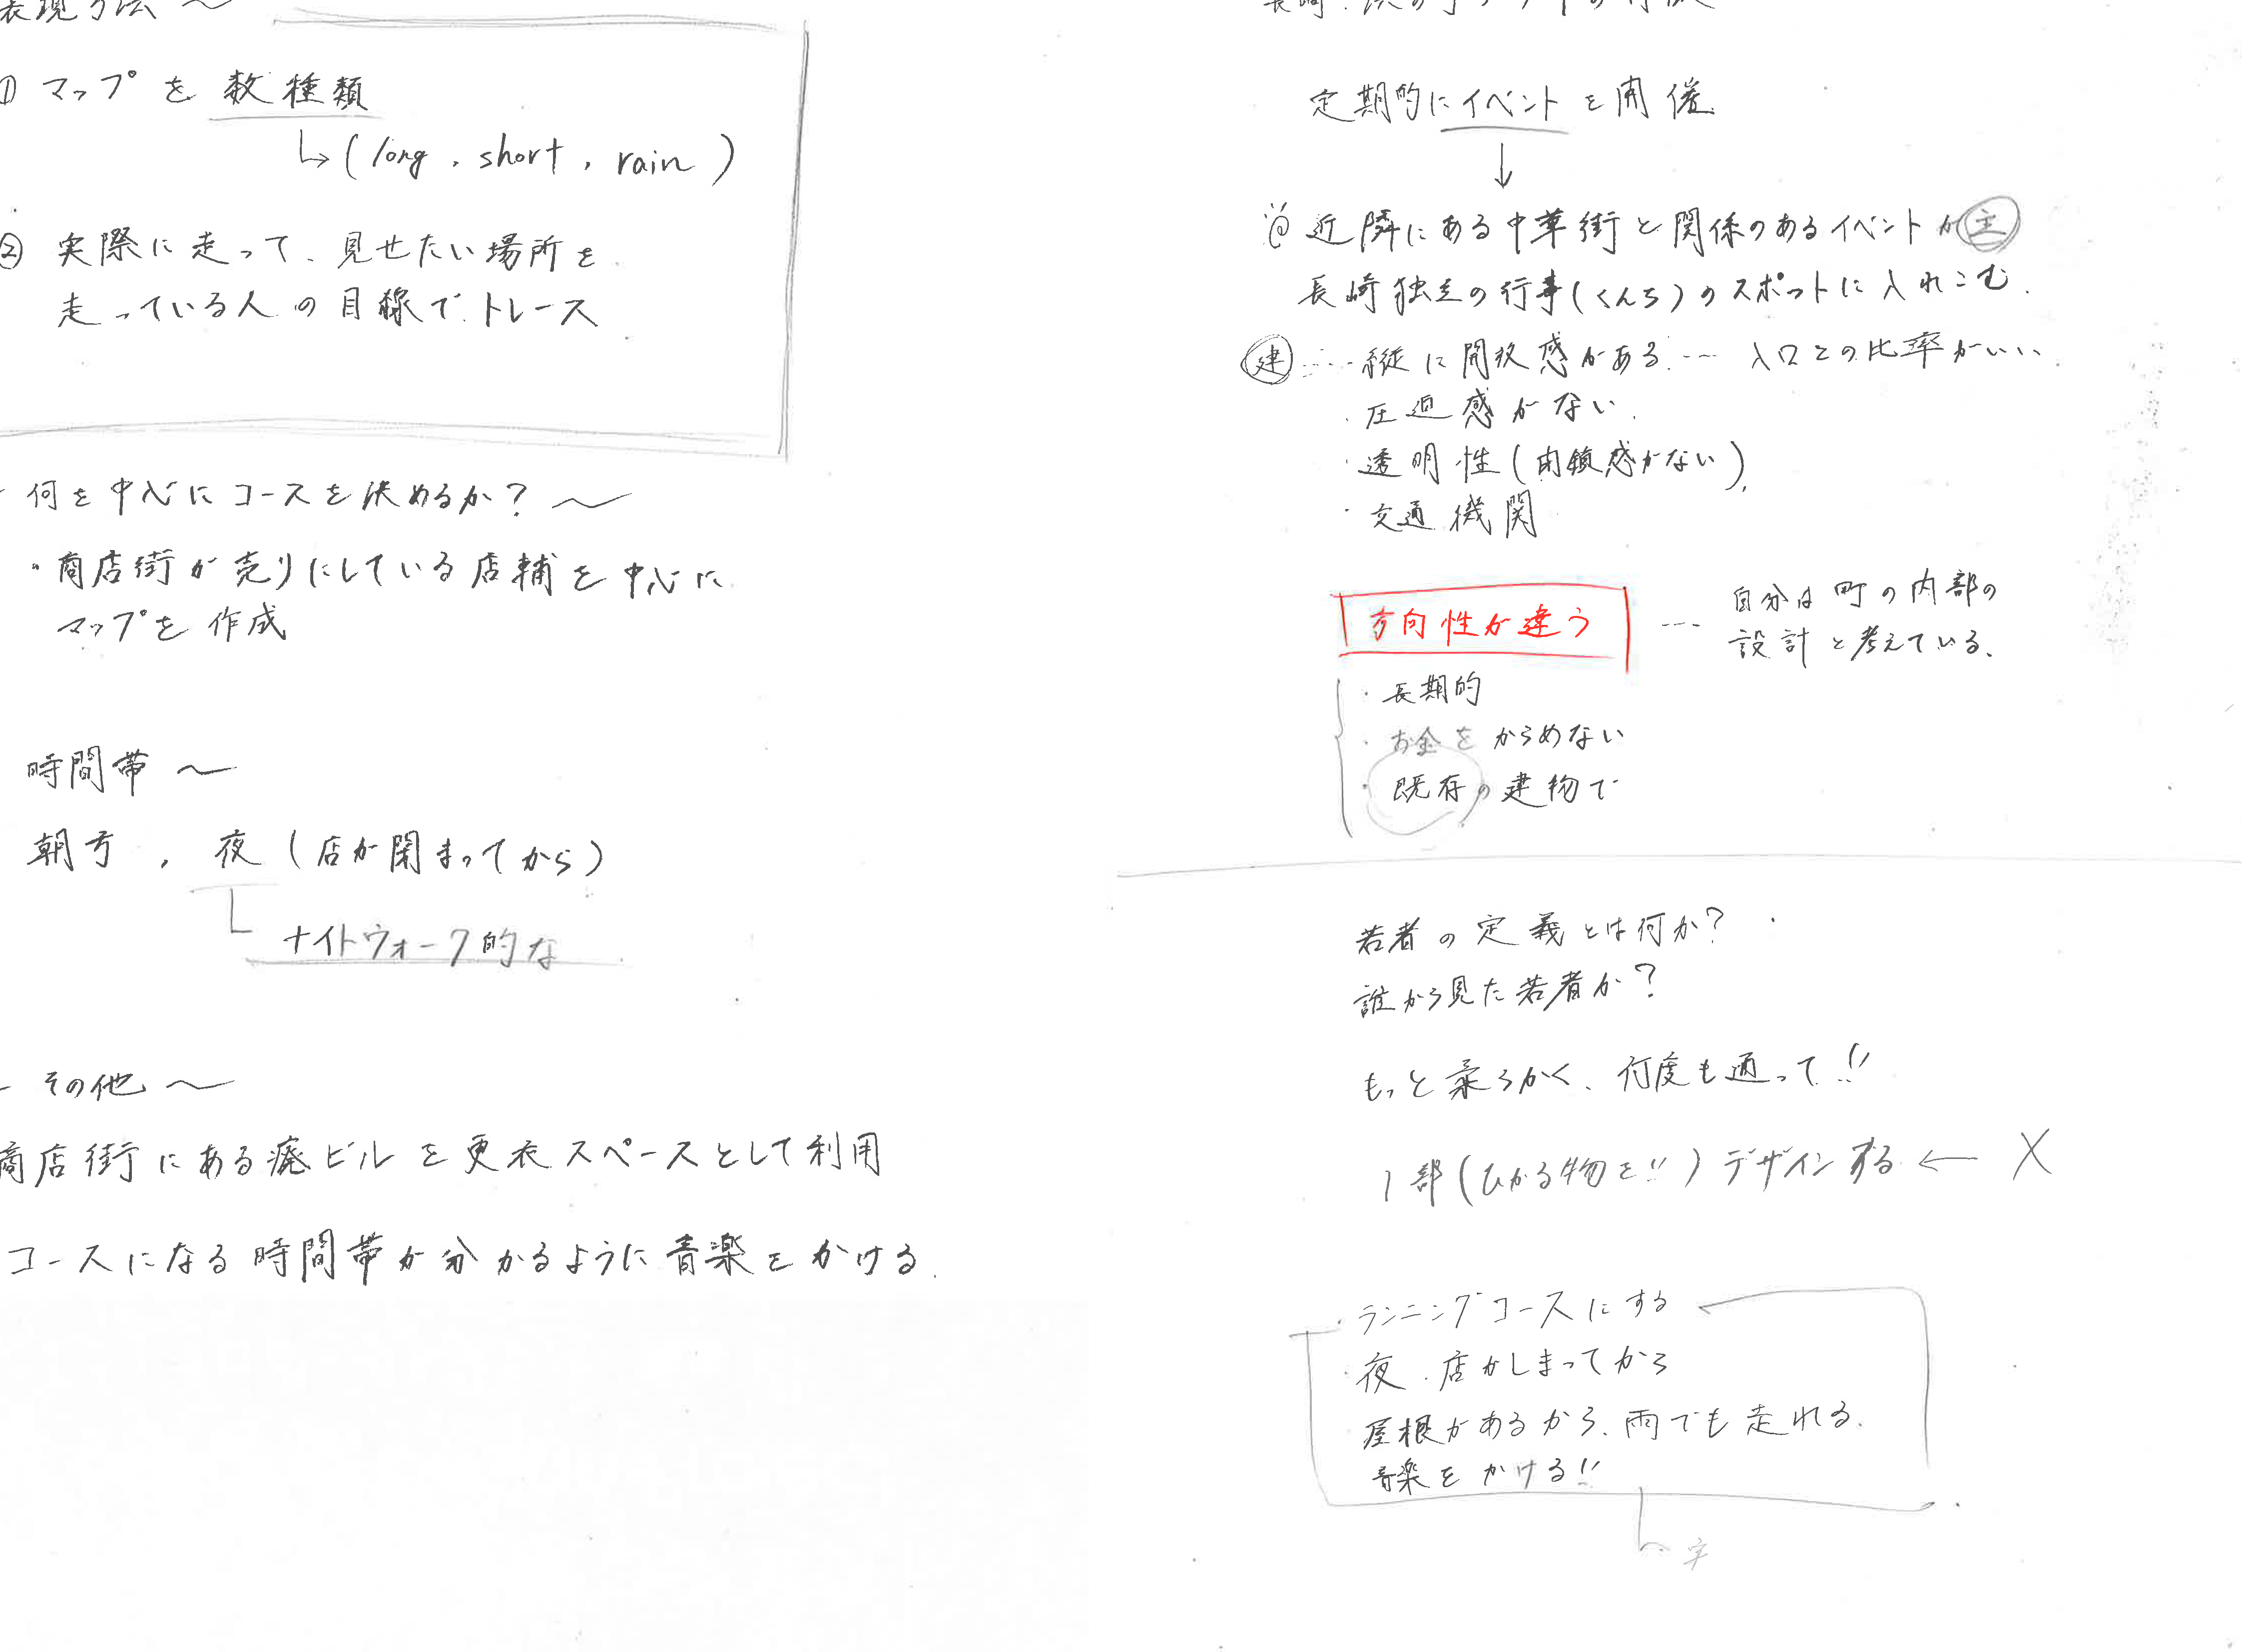 表現方法 〜
① マップを数種類
↳(long, short, rain)
② 実際に走って、見せたい場所を
走っている人の目線でトレース
何を中心にコースを決めるか? 〜
・商店街が売りにしている店舗を中心に
マップを作成
時間帯 〜
朝方, 夜(店が閉まってから)
ナイトウォーク的な
- その他 〜
商店街にある廃ビルを更衣スペースとして利用
コースになる時間帯が分かるように音楽をかける.
定期的にイベントを開催
↓
近隣にある中華街と関係のあるイベントが主
長崎独立の行事(くんち)のスポットに入れこむ.
建 ・縦に開放感がある … 入口との比率がいい
・圧迫感がない.
・透明性(閉鎖感がない)
・交通機関
方向性が違う --- 自分は町の内部の
設計と考えている、
・長期的
・お金をからめない
・既存の建物で
若者の定義とは何か?
誰から見た若者か?
もっと柔らかく、何度も通って!!
1部(ひかる物を!!)デザインする ← ×
・ランニングコースにする
・夜、店がしまってから
屋根があるから、雨でも走れる.
音楽をかける!!